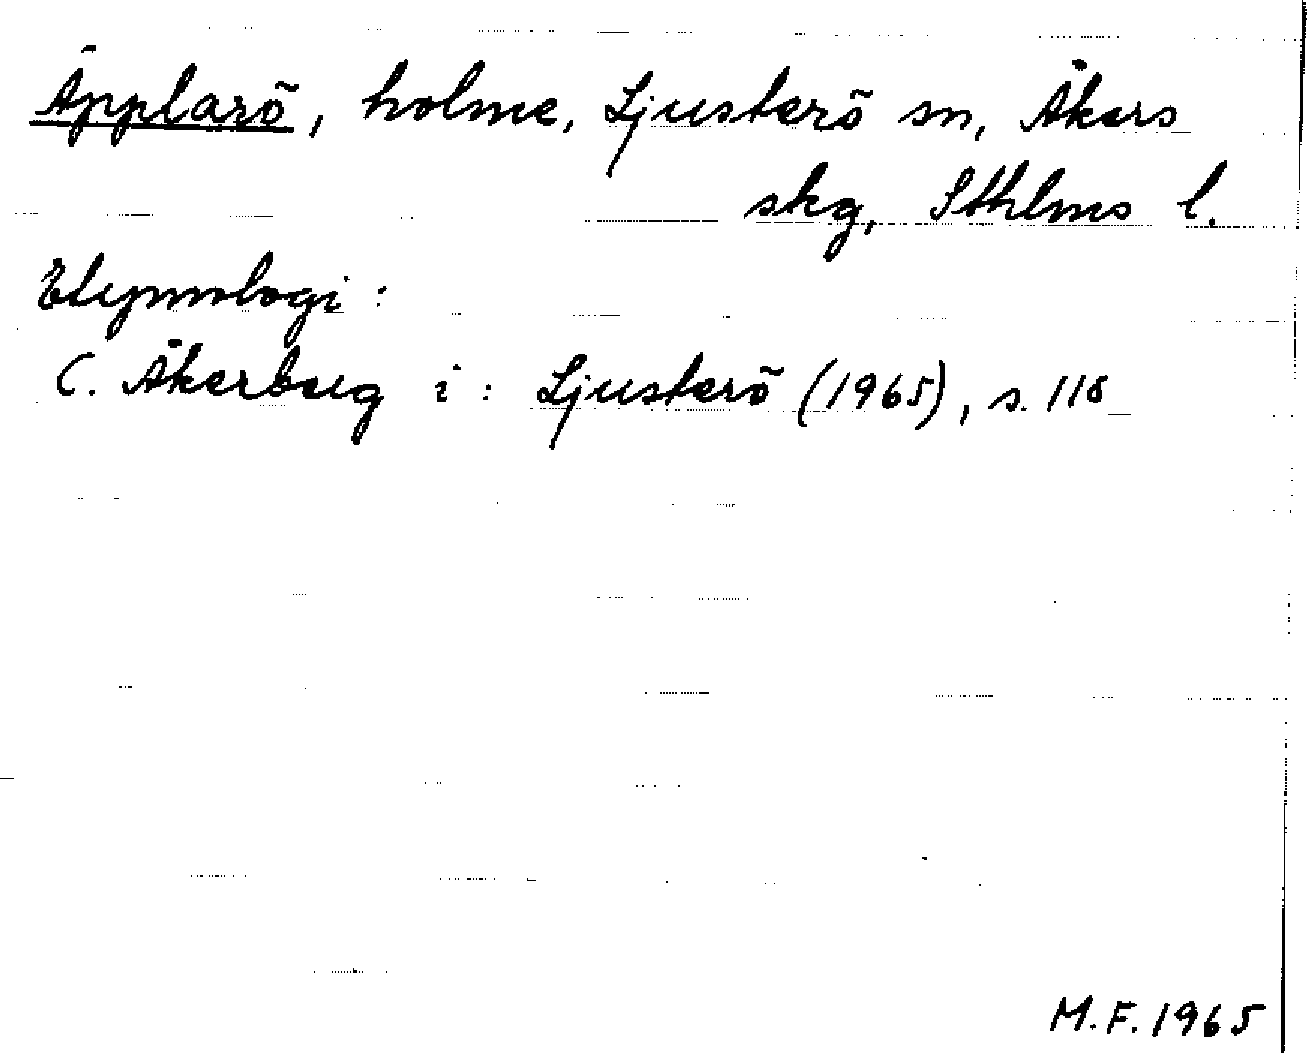 Äpplarö, holme, Ljusterö sn, Åkers
skg, Sthlms l.
Etymologi:
C. Åkerberg i: Ljusterö (1965), s. 118
M.F. 1965